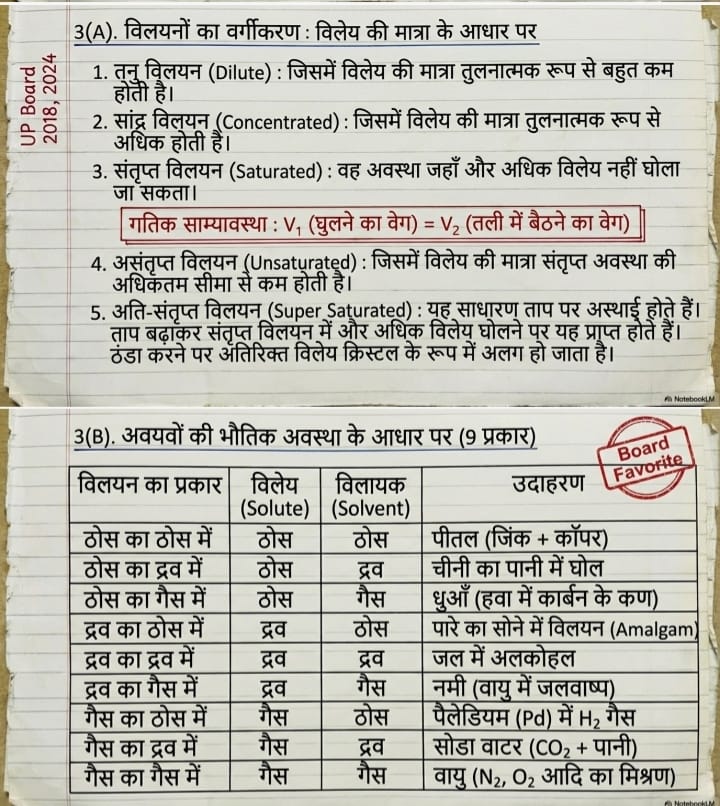 UP Board
2018, 2024
3(A). विलयनों का वर्गीकरण : विलेय की मात्रा के आधार पर
1. तनु विलयन (Dilute) : जिसमें विलेय की मात्रा तुलनात्मक रूप से बहुत कम
होती है।
2. सांद्र विलयन (Concentrated) : जिसमें विलेय की मात्रा तुलनात्मक रूप से
अधिक होती है।
3. संतृप्त विलयन (Saturated) : वह अवस्था जहाँ और अधिक विलेय नहीं घोला
जा सकता।
गतिक साम्यावस्था : V₁ (घुलने का वेग) = V₂ (तली में बैठने का वेग)
4. असंतृप्त विलयन (Unsaturated) : जिसमें विलेय की मात्रा संतृप्त अवस्था की
अधिकतम सीमा से कम होती है।
5. अति-संतृप्त विलयन (Super Saturated) : यह साधारण ताप पर अस्थाई होते हैं।
ताप बढ़ाकर संतृप्त विलयन में और अधिक विलेय घोलने पर यह प्राप्त होते हैं।
ठंडा करने पर अतिरिक्त विलेय क्रिस्टल के रूप में अलग हो जाता है।
NotebookLM
3(B). अवयवों की भौतिक अवस्था के आधार पर (9 प्रकार)
Board
Favorite
विलयन का प्रकार विलेय (Solute) विलायक (Solvent) उदाहरण
ठोस का ठोस में ठोस ठोस पीतल (जिंक + कॉपर)
ठोस का द्रव में ठोस द्रव चीनी का पानी में घोल
ठोस का गैस में ठोस गैस धुआँ (हवा में कार्बन के कण)
द्रव का ठोस में द्रव ठोस पारे का सोने में विलयन (Amalgam)
द्रव का द्रव में द्रव द्रव जल में अलकोहल
द्रव का गैस में द्रव गैस नमी (वायु में जलवाष्प)
गैस का ठोस में गैस ठोस पैलेडियम (Pd) में H₂ गैस
गैस का द्रव में गैस द्रव सोडा वाटर (CO₂ + पानी)
गैस का गैस में गैस गैस वायु (N₂, O₂ आदि का मिश्रण)
NotebookLM